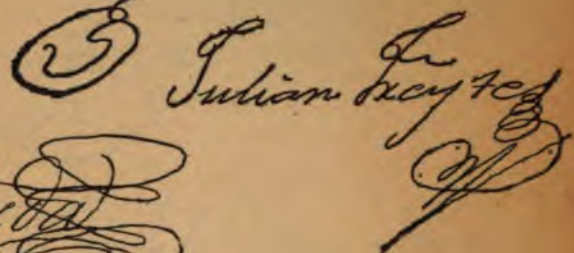 Julian Freytes